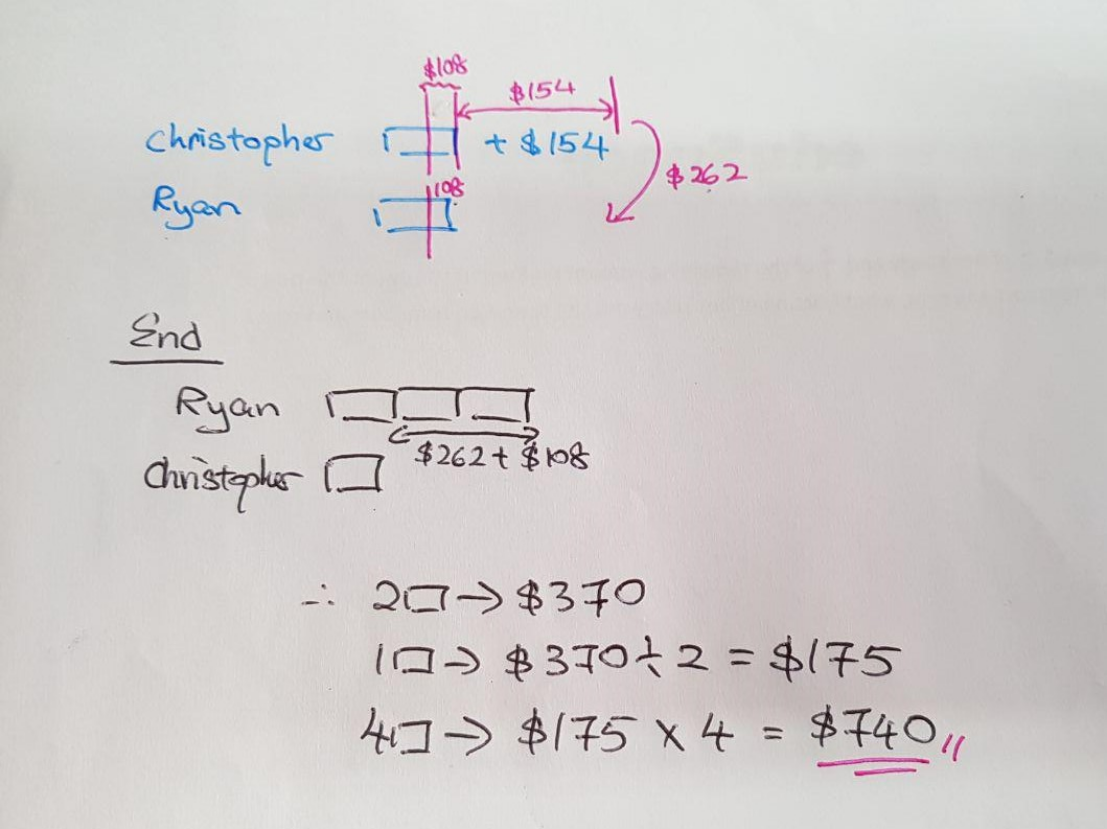 $108
$154
Christopher + $154
$262
108
Ryan
End
Ryan
$262 + $108
Christopher
∴ 2▭ → $370
1▭ → $370 ÷ 2 = $175
4▭ → $175 × 4 = $740 //